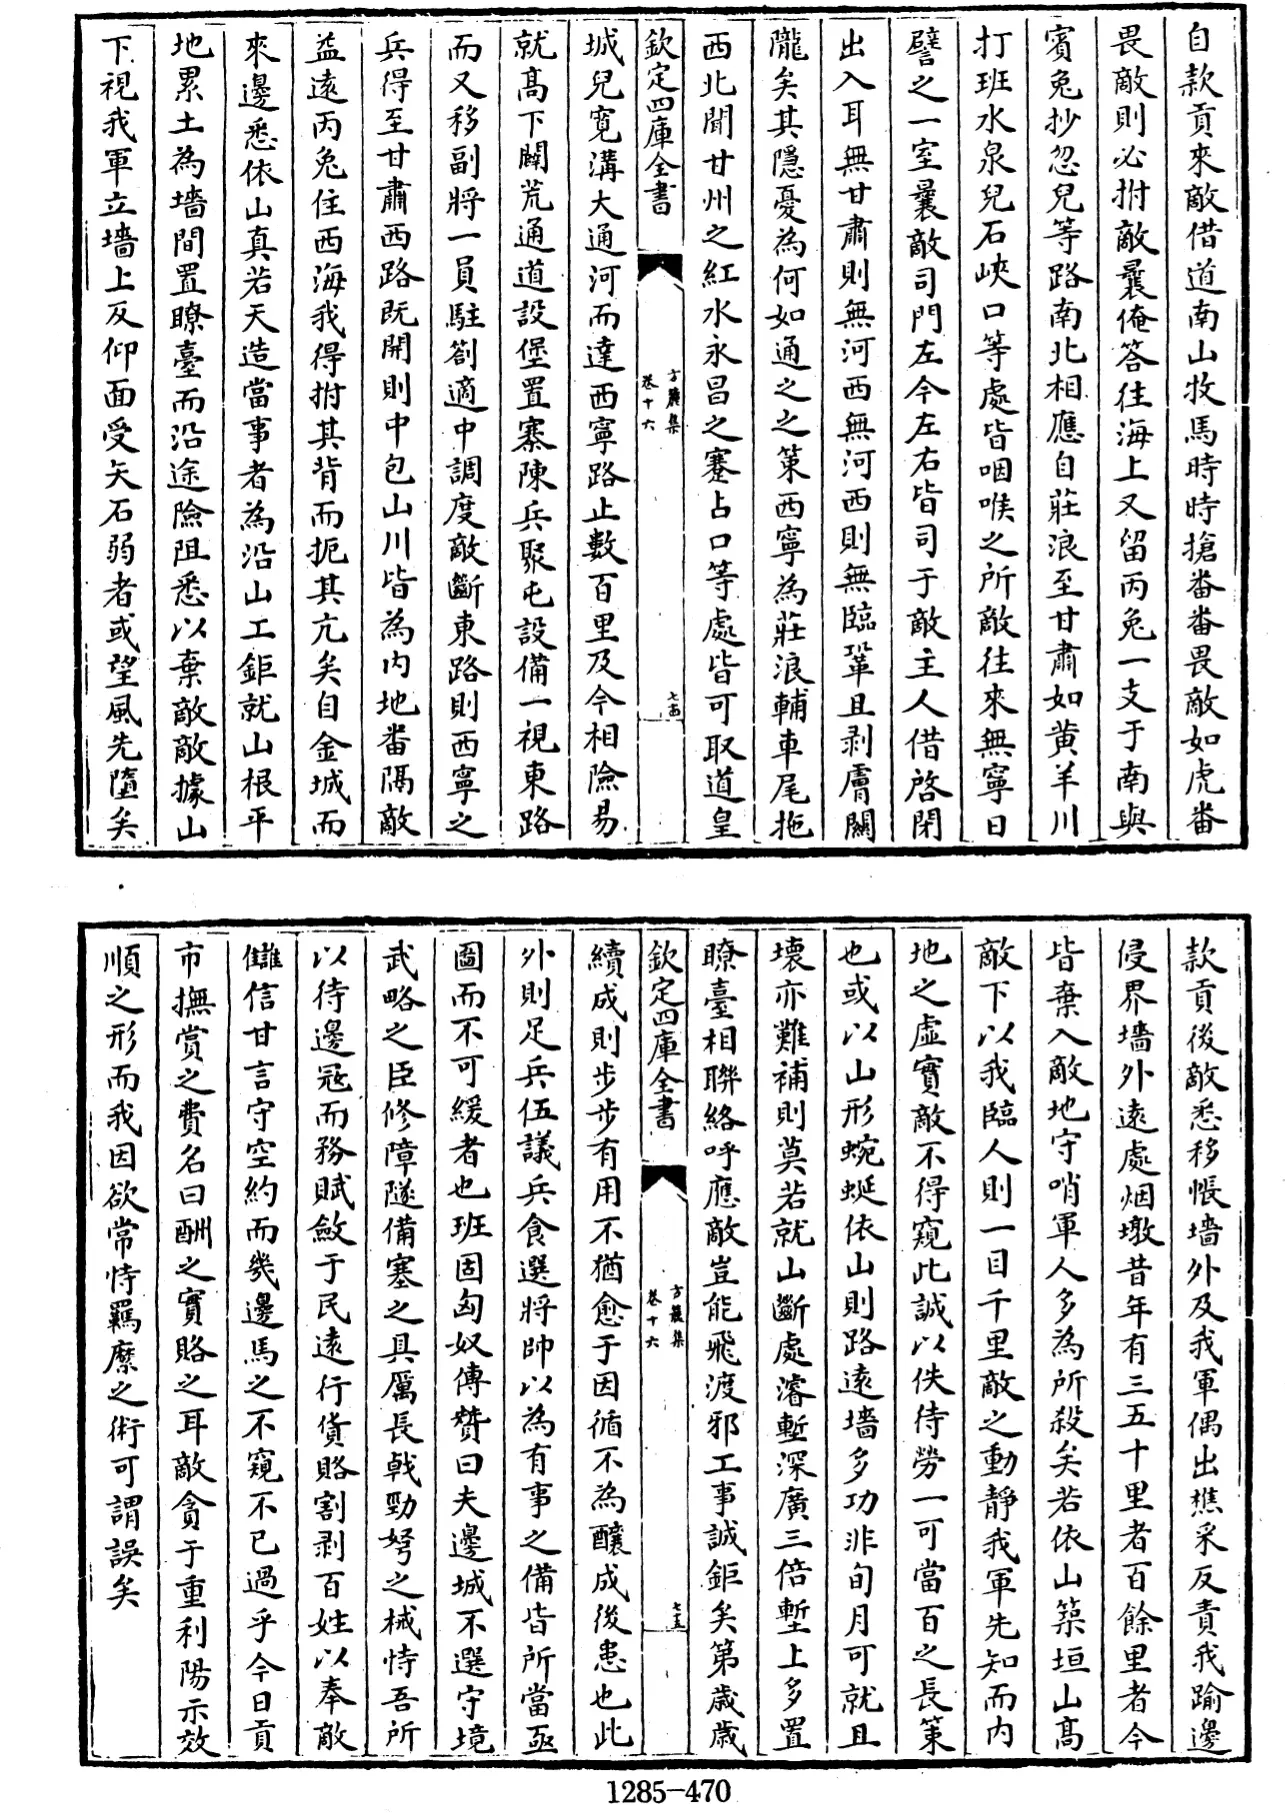 自款貢來敵借道南山牧馬時時搶番番畏敵如虎番
畏敵則必拊敵曩俺答往海上又留丙兔一支于南與
賓兔抄忽兒等路南北相應自莊浪至甘肅如黄羊川
打班水泉兒石峽口等處皆咽喉之所敵往來無寧日
譬之一室曩敵司門左今左右皆司于敵主人借啓閉
出入耳無甘肅則無河西無河西則無臨鞏且剥膚關
隴矣其隱憂為何如通之之策西寧為莊浪輔車尾拖
西北聞甘州之紅水永昌之蹇占口等處皆可取道皇
欽定四庫全書
方麓集
卷十六
七十四
城兒寛溝大通河而達西寧路止數百里及今相險易
就髙下闢荒通道設堡置寨陳兵聚屯設備一視東路
而又移副將一員駐劄適中調度敵斷東路則西寧之
兵得至甘肅西路既開則中包山川皆為内地番隔敵
益遠丙兔住西海我得拊其背而扼其亢矣自金城而
來邊悉依山真若天造當事者為沿山工鉅就山根平
地累土為墻間置瞭臺而沿途險阻悉以棄敵敵據山
下視我軍立墻上反仰面受矢石弱者或望風先墮矣
款貢後敵悉移帳墻外及我軍偶出樵采反責我踰邊
侵界墻外遠處烟墩昔年有三五十里者百餘里者今
皆棄入敵地守哨軍人多為所殺矣若依山築垣山髙
敵下以我臨人則一目千里敵之動靜我軍先知而内
地之虛實敵不得窺此誠以佚待勞一可當百之長策
也或以山形蜿蜒依山則路遠墻多功非旬月可就且
壞亦難補則莫若就山斷處濬塹深廣三倍塹上多置
瞭臺相聯絡呼應敵豈能飛渡邪工事誠鉅矣第歳歳
欽定四庫全書
方麓集
卷十六
七十五
續成則步步有用不猶愈于因循不為釀成後患也此
外則足兵伍議兵食選將帥以為有事之備皆所當亟
圖而不可緩者也班固匈奴傳贊曰夫邊城不選守境
武略之臣修障隧備塞之具厲長戟勁弩之械恃吾所
以待邊寇而務賦斂于民遠行貨賂割剥百姓以奉敵
讎信甘言守空約而幾邊馬之不窺不已過乎今日貢
市撫賞之費名曰酬之實賂之耳敵貪于重利陽示效
順之形而我因欲常恃羈縻之術可謂誤矣
1285-470